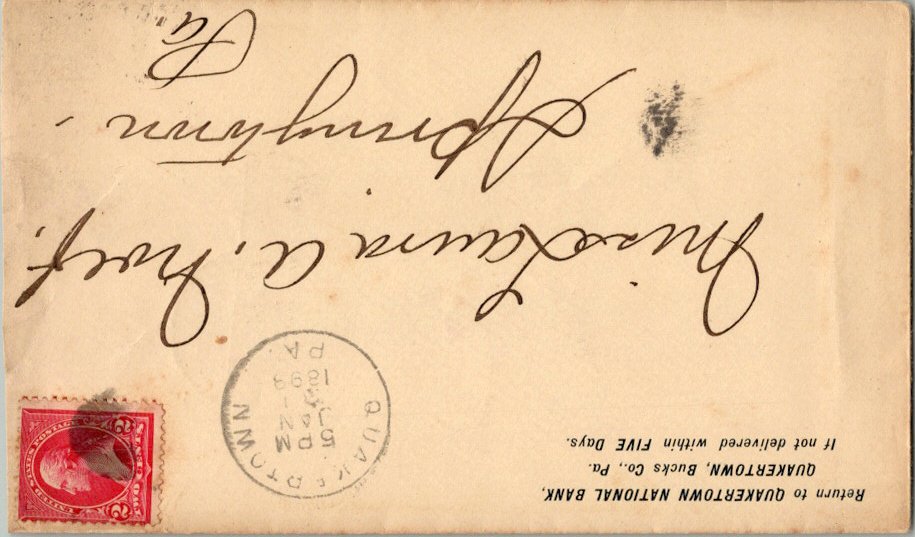 Return to QUAKERTOWN NATIONAL BANK,
QUAKERTOWN, Bucks Co., Pa.
If not delivered within FIVE Days.
QUAKERTOWN
5 PM
JAN
1898
PA
UNITED STATES POSTAGE
2 2
Miss Laura A.
Springtown,
Pa.